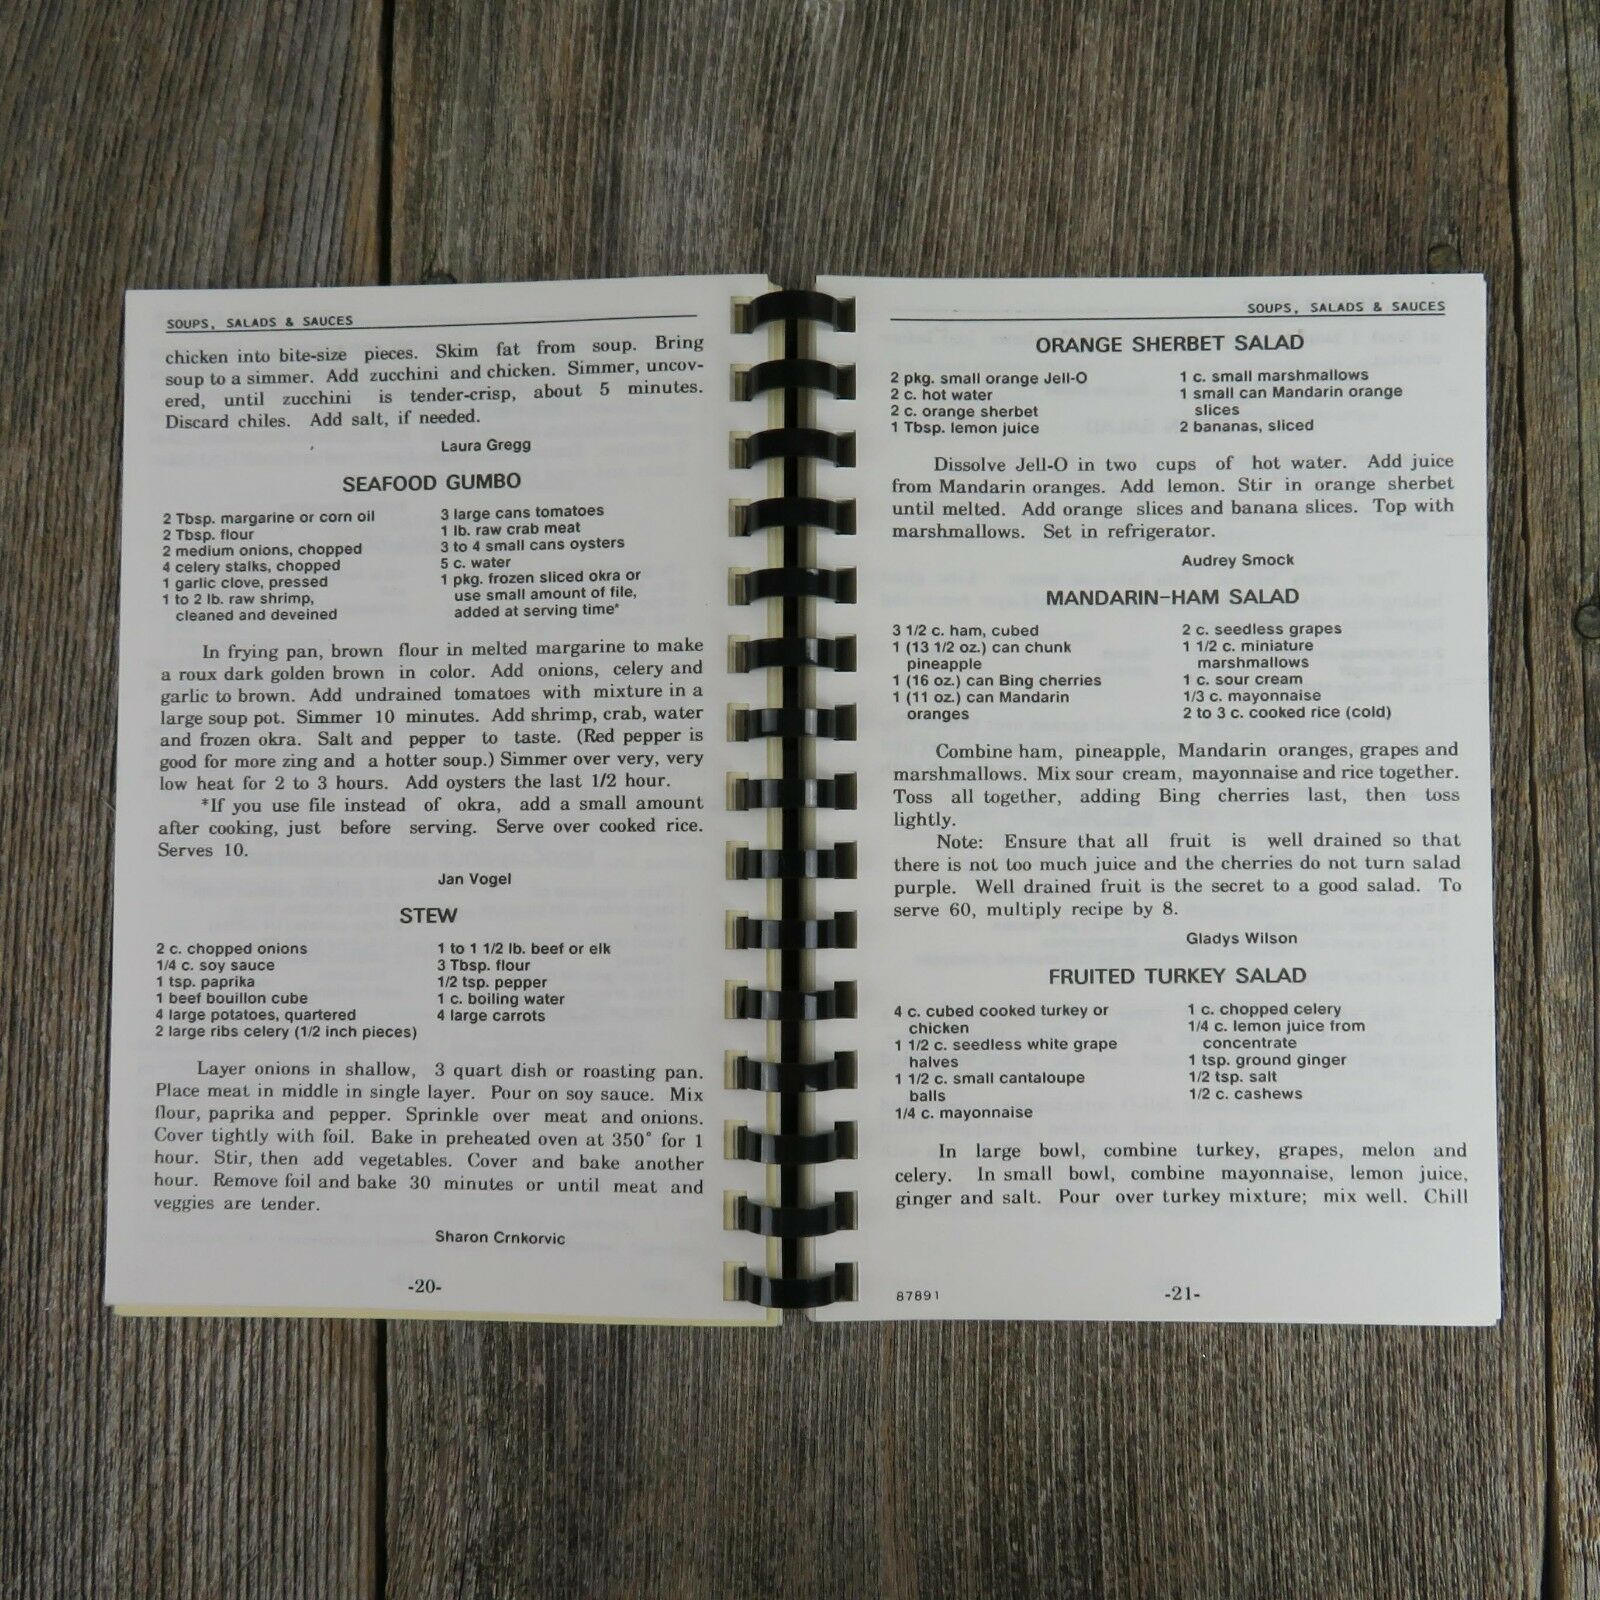 SOUPS, SALADS & SAUCES
chicken into bite-size pieces. Skim fat from soup. Bring
soup to a simmer. Add zucchini and chicken. Simmer, uncov-
ered, until zucchini is tender-crisp, about 5 minutes.
Discard chiles. Add salt, if needed.
Laura Gregg
SEAFOOD GUMBO
2 Tbsp. margarine or corn oil
2 Tbsp. flour
2 medium onions, chopped
4 celery stalks, chopped
1 garlic clove, pressed
1 to 2 lb. raw shrimp,
cleaned and deveined
3 large cans tomatoes
1 lb. raw crab meat
3 to 4 small cans oysters
5 c. water
1 pkg. frozen sliced okra or
use small amount of file,
added at serving time*
In frying pan, brown flour in melted margarine to make
a roux dark golden brown in color. Add onions, celery and
garlic to brown. Add undrained tomatoes with mixture in a
large soup pot. Simmer 10 minutes. Add shrimp, crab, water
and frozen okra. Salt and pepper to taste. (Red pepper is
good for more zing and a hotter soup.) Simmer over very, very
low heat for 2 to 3 hours. Add oysters the last 1/2 hour.
*If you use file instead of okra, add a small amount
after cooking, just before serving. Serve over cooked rice.
Serves 10.
Jan Vogel
STEW
2 c. chopped onions
1/4 c. soy sauce
1 tsp. paprika
1 beef bouillon cube
4 large potatoes, quartered
2 large ribs celery (1/2 inch pieces)
1 to 1 1/2 lb. beef or elk
3 Tbsp. flour
1/2 tsp. pepper
1 c. boiling water
4 large carrots
Layer onions in shallow, 3 quart dish or roasting pan.
Place meat in middle in single layer. Pour on soy sauce. Mix
flour, paprika and pepper. Sprinkle over meat and onions.
Cover tightly with foil. Bake in preheated oven at 350° for 1
hour. Stir, then add vegetables. Cover and bake another
hour. Remove foil and bake 30 minutes or until meat and
veggies are tender.
Sharon Crnkorvic
-20-
SOUPS, SALADS & SAUCES
ORANGE SHERBET SALAD
2 pkg. small orange Jell-O
2 c. hot water
2 c. orange sherbet
1 Tbsp. lemon juice
1 c. small marshmallows
1 small can Mandarin orange
slices
2 bananas, sliced
Dissolve Jell-O in two cups of hot water. Add juice
from Mandarin oranges. Add lemon. Stir in orange sherbet
until melted. Add orange slices and banana slices. Top with
marshmallows. Set in refrigerator.
Audrey Smock
MANDARIN-HAM SALAD
3 1/2 c. ham, cubed
1 (13 1/2 oz.) can chunk
pineapple
1 (16 oz.) can Bing cherries
1 (11 oz.) can Mandarin
oranges
2 c. seedless grapes
1 1/2 c. miniature
marshmallows
1 c. sour cream
1/3 c. mayonnaise
2 to 3 c. cooked rice (cold)
Combine ham, pineapple, Mandarin oranges, grapes and
marshmallows. Mix sour cream, mayonnaise and rice together.
Toss all together, adding Bing cherries last, then toss
lightly.
Note: Ensure that all fruit is well drained so that
there is not too much juice and the cherries do not turn salad
purple. Well drained fruit is the secret to a good salad. To
serve 60, multiply recipe by 8.
Gladys Wilson
FRUITED TURKEY SALAD
4 c. cubed cooked turkey or
chicken
1 1/2 c. seedless white grape
halves
1 1/2 c. small cantaloupe
balls
1/4 c. mayonnaise
1 c. chopped celery
1/4 c. lemon juice from
concentrate
1 tsp. ground ginger
1/2 tsp. salt
1/2 c. cashews
In large bowl, combine turkey, grapes, melon and
celery. In small bowl, combine mayonnaise, lemon juice,
ginger and salt. Pour over turkey mixture; mix well. Chill
87891
-21-